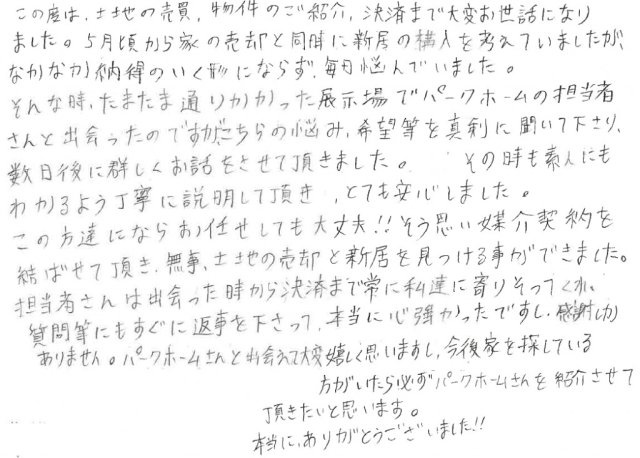 この度は、土地の売買、物件のご紹介、決済まで大変お世話になり
ました。5月頃から家の売却と同時に新居の構入を考えていましたが、
なかなか納得のいく形にならず、毎日悩んでいました。
そんな時、たまたま通りかかった展示場でパークホームの担当者
さんと出会ったのですが、こちらの悩み、希望等を真剣に聞いて下さり、
数日後に詳しくお話をさせて頂きました。 その時も素人にも
わかるよう丁寧に説明して頂き、とても安心しました。
この方達にならお任せしても大丈夫!!そう思い媒介契約を
結ばせて頂き、無事、土地の売却と新居を見つける事ができました。
担当者さんは出会った時から決済まで常に私達に寄りそってくれ、
質問等にもすぐに返事を下さって、本当に心強かったですし、感謝しか
ありません。パークホームさんと出会えて大変嬉しく思いますし、今後家を探している
方がいたら必ずパークホームさんを紹介させて
頂きたいと思います。
本当に、ありがとうございました!!